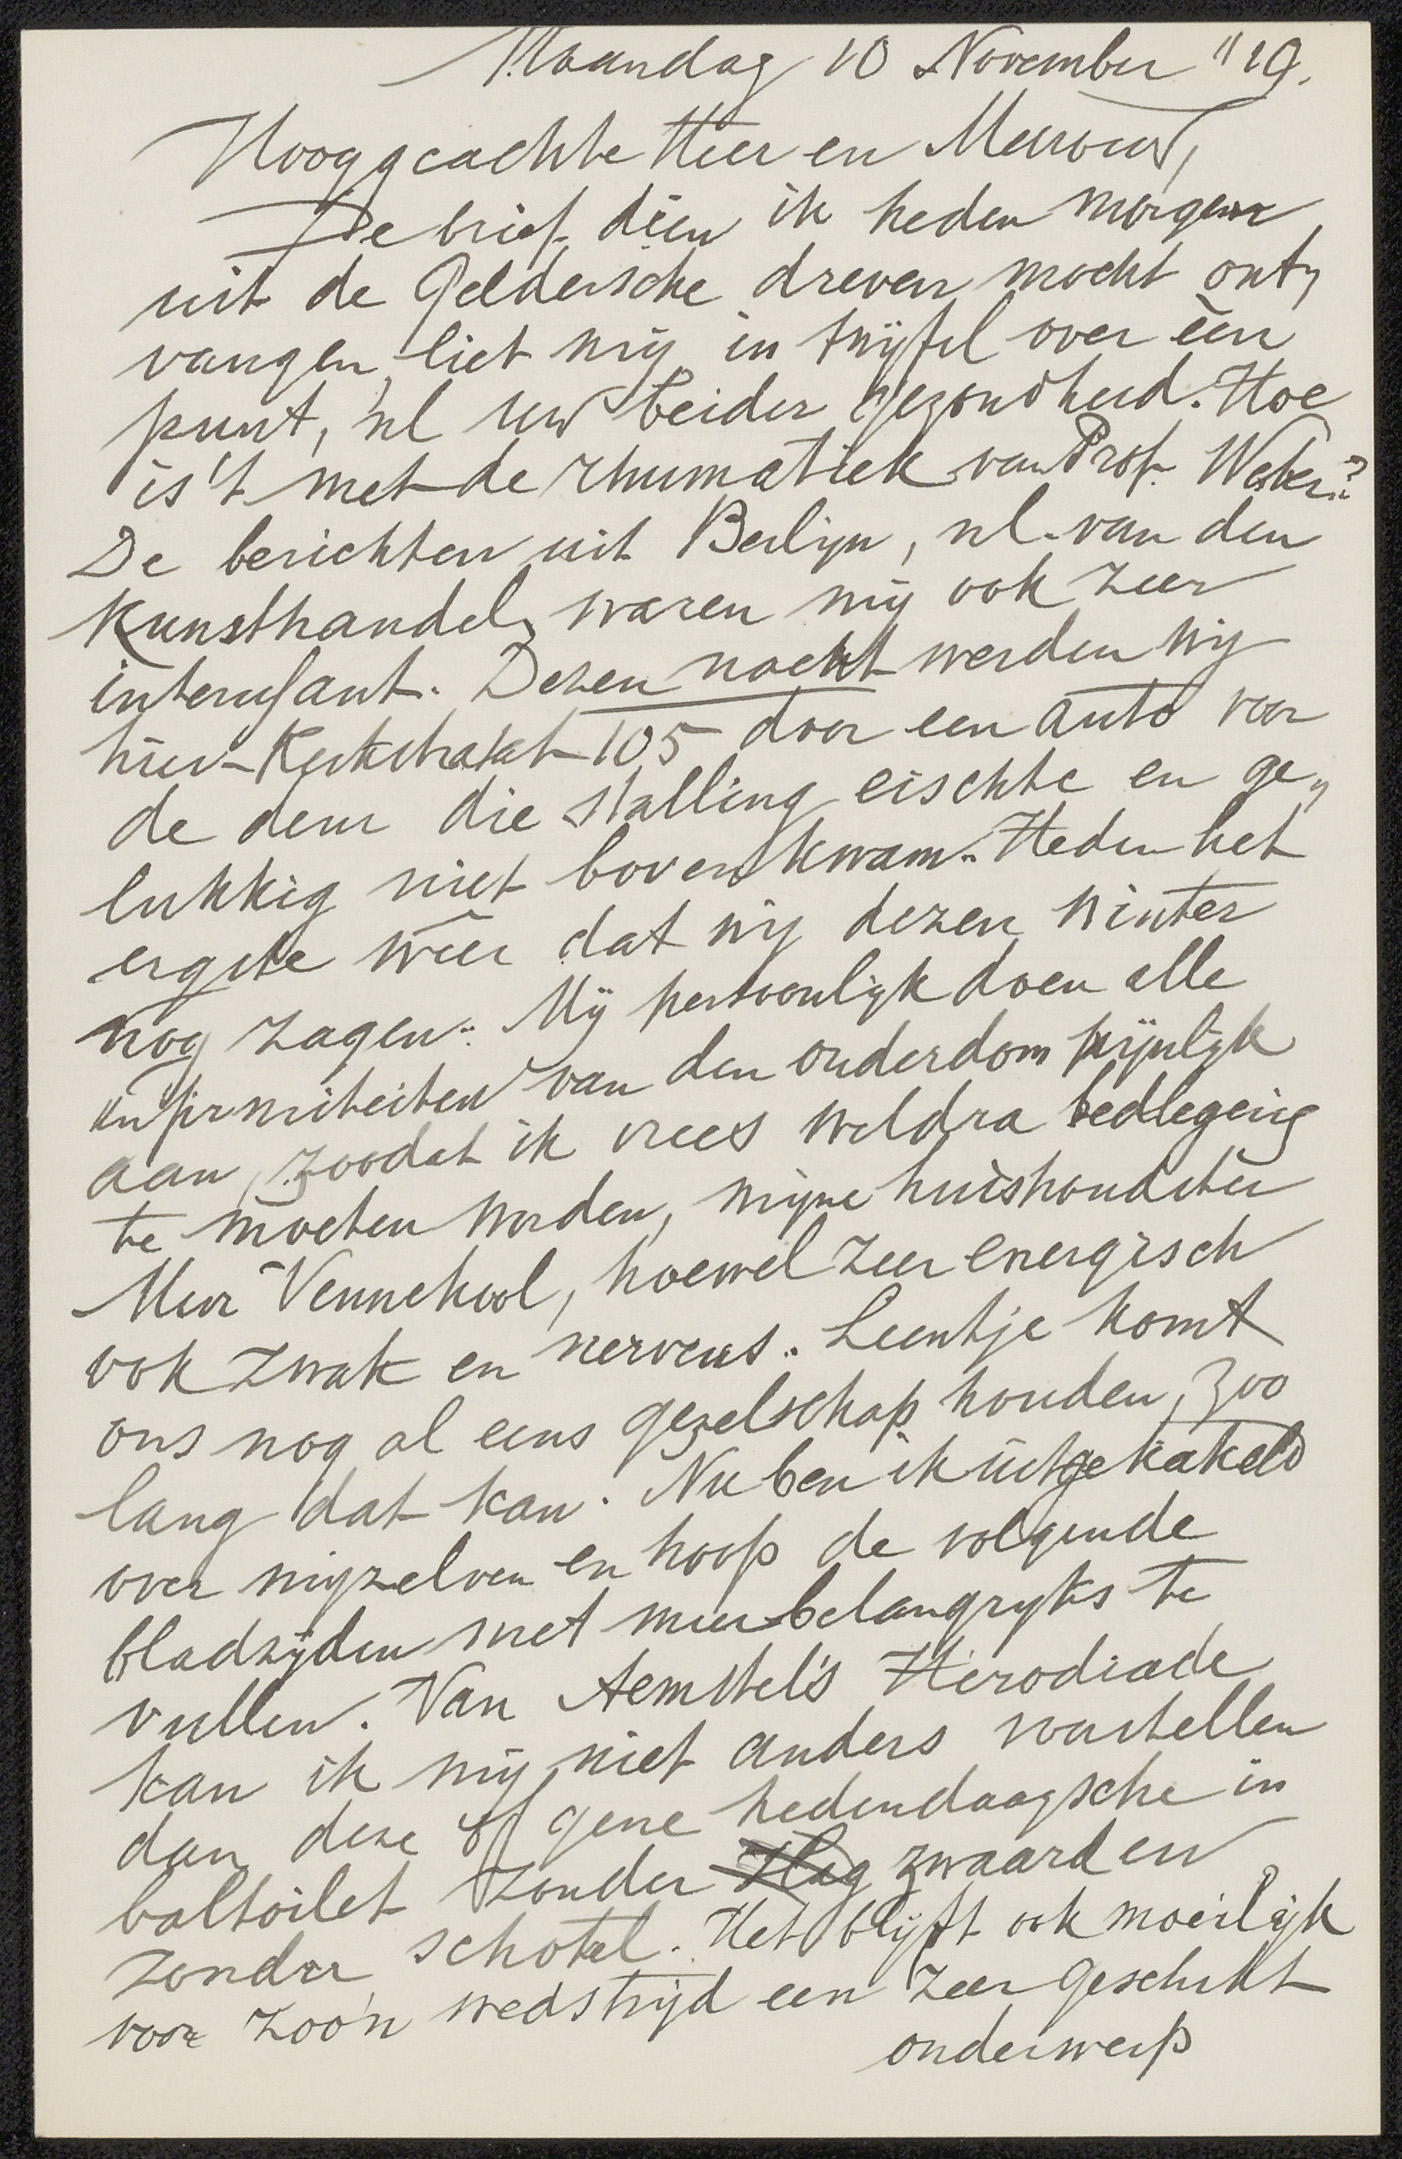 Maandag 10 November "19.
Hooggeachte Heer en Mevrouw,
De brief dien ik heden morgen
uit de Geldersche dreven mocht ont„
vangen, liet mij in twijfel over één
punt, nl uw beider gezondheid. Hoe
is't met de rhumatiek van Prof.
De berichten uit Berlijn, nl. van den
kunsthandel, waren mij ook zeer
interessant. Dezen nacht werden wij
hier Kerkstraat 105 door een auto voor
de deur die stalling eischte en ge„
lukkig niet boven kwam. Heden het
ergste wéer dat wij dezen winter
nog zagen. Mij persoonlijk doen alle
infirmiteiten van den ouderdom pijnlijk
aan, zoodat ik vrees weldra bedlegerig
te moeten worden, mijne huishoudster
Mevr Vennekool, hoewel zeer energisch
ook zwak en nerveus. Leentje komt
ons nog al eens gezelschap houden, zoo
lang dat kan. Nu ben ik uitgekakeld
over mijzelven en hoop de volgende
bladzijden met meer belangrijks te
vullen. Van Aemstel's Herodiade
kan ik mij niet anders voorstellen
dan deze of gene hedendaagsche in
baltoilet zonder zwaard en
zonder schotel. Het blijft ook moeilijk
voor zoo'n wedstrijd een zeer geschikt
onderwerp